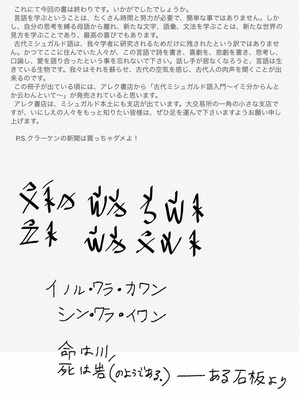 これにて今回の書は終わりです。いかがでしたでしょうか。
言語を学ぶということは、たくさん時間と努力が必要で、簡単な事ではありません。しか
し、自分の思考を縛る母語から離れ、新たな文字、語彙、文法を学ぶことは、新たな世界の
見方を学ぶことであり、最高の喜びでもあります。
古代ミシュガルド語は、我々学者に研究されるためだけに残されたという訳ではありませ
ん。かつてここに住んでいた人々が、この言語で詩を書き、喜劇を、悲劇を書き、思考し、
口論し、愛を語り合ったという事を忘れないで下さい。話し手が居なくなろうと、言語は生
きている生物です。我々はそれを蘇らせ、古代の空気を感じ、古代人の肉声を聞くことが出
来るのです。
この冊子が出ている頃には、アレク書店から「古代ミシュガルド語入門〜イミ分からんと
か云わんといて〜」が発売されていると思います。
アレク書店は、ミシュガルド本土にも支店が出ています。大交易所の一角の小さな支店で
すが、いにしえの人々をもっと知りたい皆様は、ぜひ足を運んで下さいますようお願い申し
上げます。
P.S.クラーケンの新聞は買っちゃダメよ！
イノル・ワラ・カワン
シン・ワラ・イワン
命は川、
死は岩(のようである。) ——ある石板より